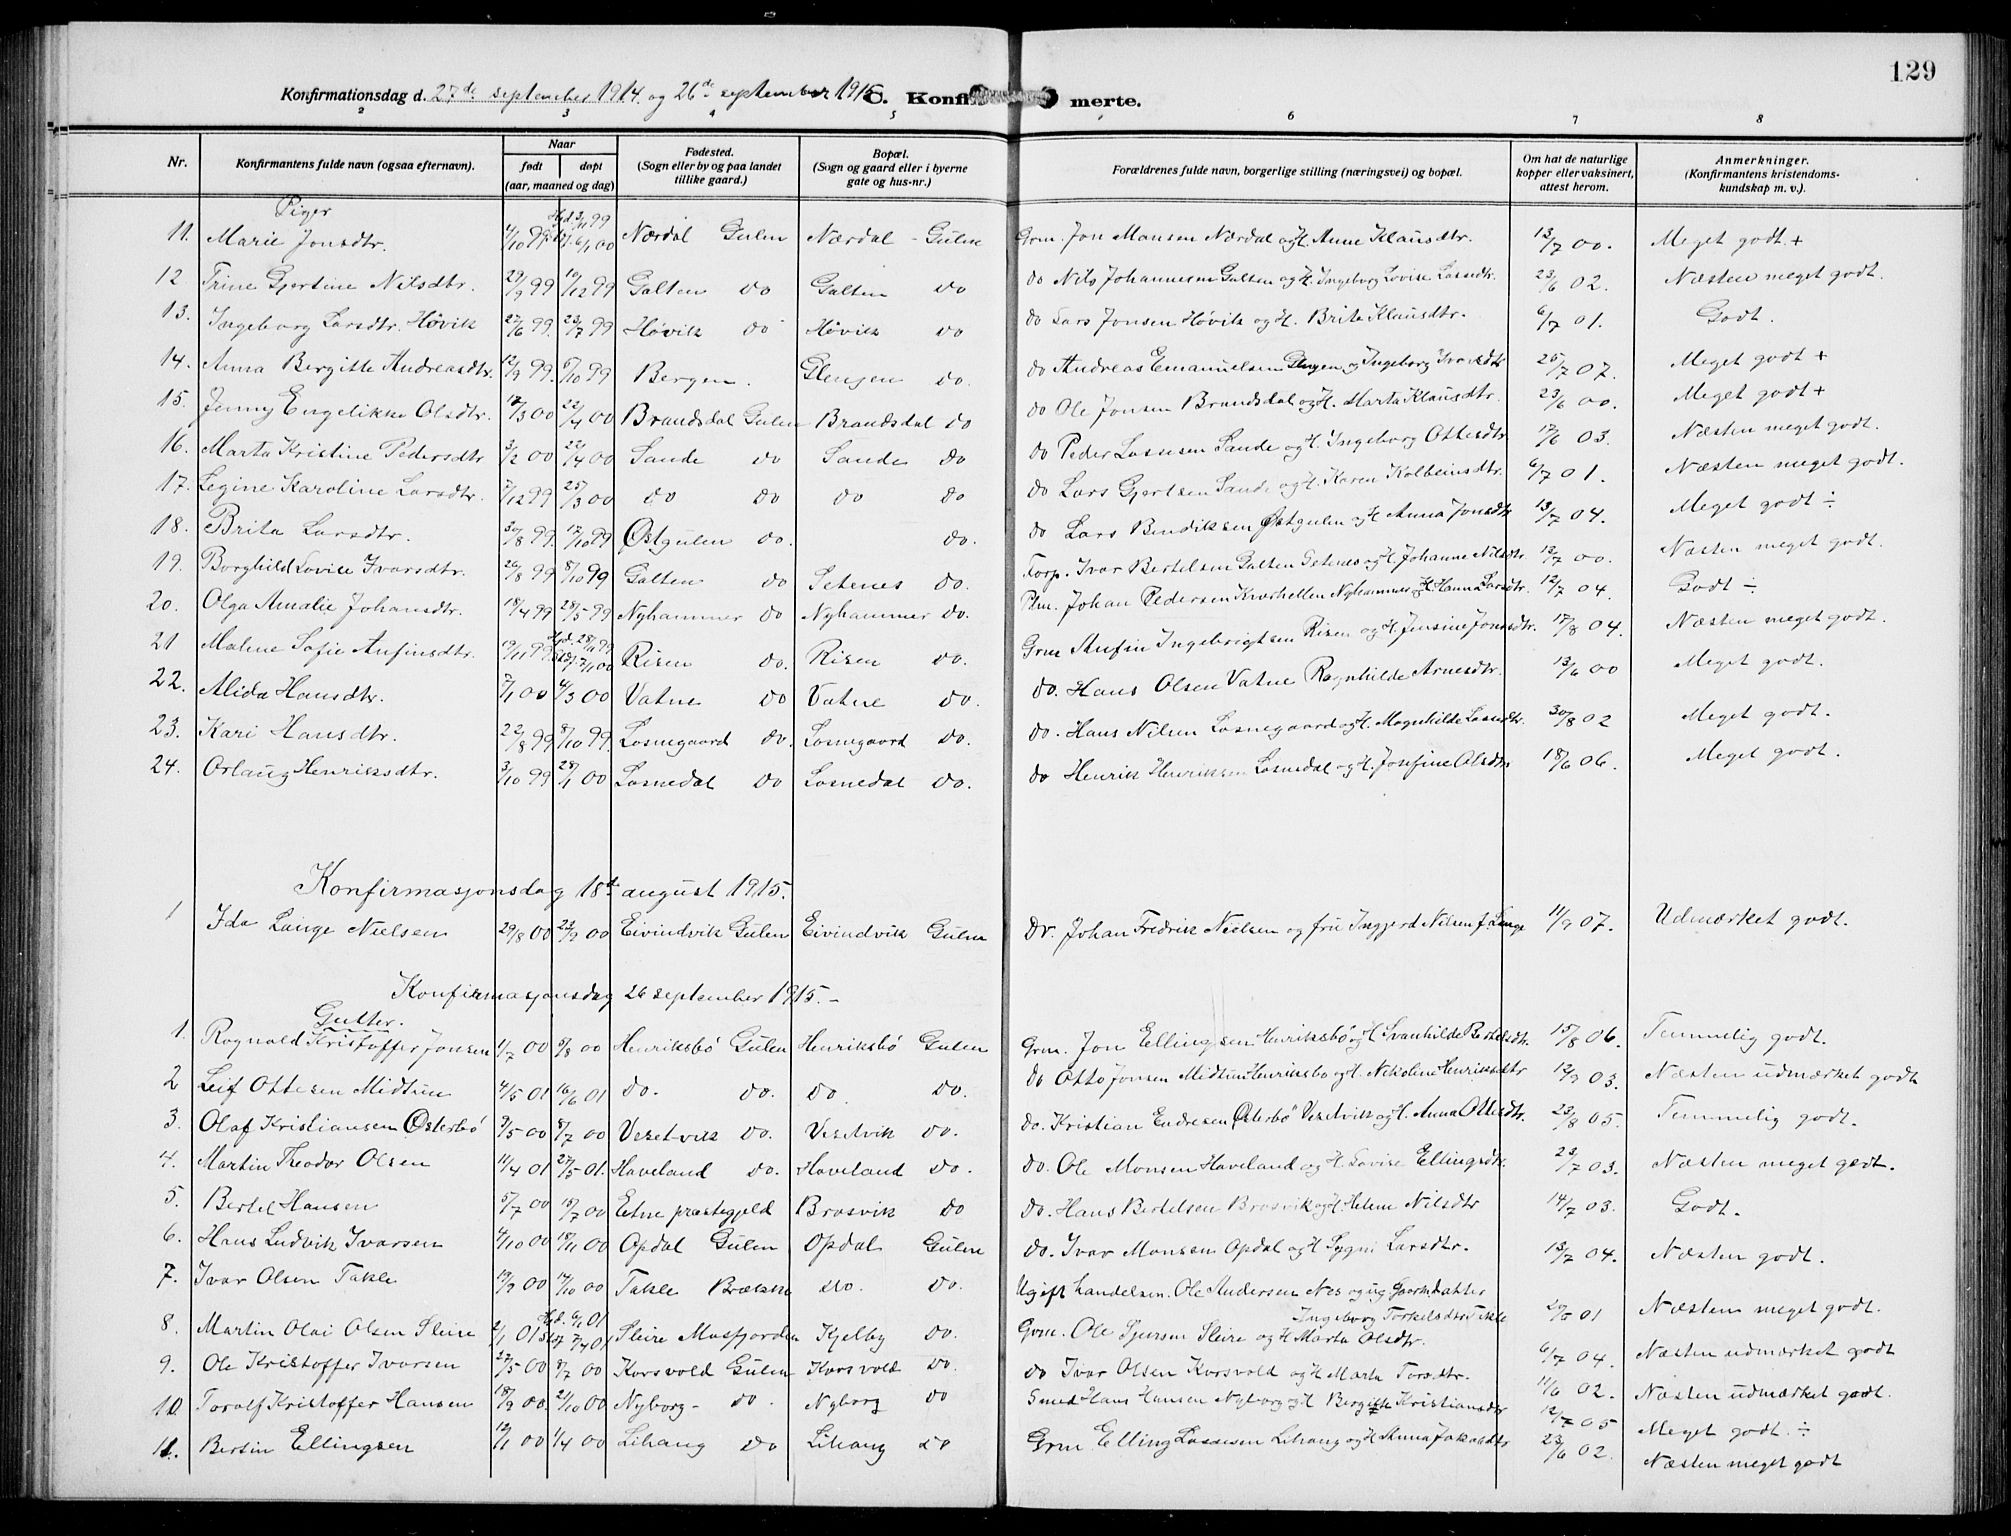 129
Konfirmationsdag d. 27de september 1914. og 26de september 1915 C. Konfirmerte.
2 3 4 5 6 7 8
Nr. Konfirmantens fulde navn (ogsaa efternavn). Naar født døpt (aar, maaned og dag) Fødested. (Sogn eller by og paa landet tillike gaard.) Bopæl. (Sogn og gaard eller i byerne gate og hus-nr.) Forældrenes fulde navn, borgerlige stilling (næringsvei) og bopæl. Om hat de naturlige kopper eller vaksinert, attest herom. Anmerkninger. (Konfirmantens kristendomskundskap m. v.).
Piger
11. Marie Jonsdtr. 4/10 99 Hjd. 3/11 99 6/1 00 Nærdal Gulen Nærdal - Gulen Grm. Jon Monsen Nærdal og H. Anne Klausdtr. 13/7 00. Meget godt. +
12 Trine Gjertine Nilsdtr. 29/9 99 10/12 99 Galten do Galten do do Nils Johannesen Galten og H. Ingeborg Lovise Lassedtr. 23/6 02. Næsten meget godt.
13. Ingeborg Larsdtr. Høvik 27/6 99. 23/7 99 Høvik do Høvik do do Lars Jonsen Høvik og H. Brite Klausdtr. 6/7 01. Godt.
14. Anna Bergitte Andreasdtr. 12/9 99. 8/10 99 Bergen. Glenjen do. do Andreas Emanuelsen Glenjen og Ingeborg Ivarsdtr 25/7 07. Meget godt +
15. Jenny Engelikke Olsdtr. 12/3 00 22/4 00 Brandsdal Gulen Brandsdal do do Ole Jonsen Brandsdal og H. Marta Klausdtr. 23/6 00. Meget godt +
16. Marta Kristine Pedersdtr 3/2 00 22/4 00 Sande do Sande do do Peder Lassesen Sande og H. Ingeborg Ottesdtr 17/6 03. Næsten meget godt.
17. Legine Karoline Larsdtr. 7/12 99 25/3 00 do do do do do Lars Gjertsen Sande og H. Karen Kolbeinsdtr. 6/7 01. Næsten meget godt.
18. Brita Larsdtr. 30/8 99. 17/10 99 Østgulen do. do. do Lars Bendiksen Østgulen og H Anna Jonsdtr 13/7 04. Meget godt ÷
19. Borghild Lovise Ivarsdtr. 26/8 99 8/10 99 Galten do Setenes do. Forp. Ivar Bertelsen Galten Setenes og H. Johanne Nilsdtr. 13/7 00. Næsten meget godt.
20. Olga Amalie Johansdtr. 18/4 99 28/5 99 Nyhammer do Nyhammer do. Plm. Johan Pedersen Kvarhellen Nyhammer og H. Hanna Larsdtr. 12/7 04. Godt ÷
21 Malene Sofie Anfinsdtr. 19/11 99. Hjd. 28/11 99 Stdf. 7/1 00 Risen do. Risen do. Grm Anfin Ingebrigtsen Risen og H. Jensine Jonsdtr. 17/8 04. Næsten meget godt.
22. Alida Hansdtr. 7/1 00 4/3 00 Vatne do Vatne do. do. Hans Olsen Vatne Ragnhilde Arnesdtr. 13/6 00 Meget godt.
23. Kari Hansdtr. 22/8 99 8/10 99. Losnegaard do. Losnegaard do. do. Hans Nilsen Losnegaard og H. Magnhilde Lassedtr. 30/8 02 Meget godt.
24. Orlaug Henriksdtr. 3/10 99 28/1 00 Losnedal do Losnedal do. do Henrik Henriksen Losnedal og H. Josefine Olsdtr 18/6 06. Meget godt.
Konfirmasjonsdag 18de august 1915.
1 Ida Lange Nielsen 29/8 00 23/9 00 Eivindvik Gulen Eivindvik Gulen Dr. Johan Fredrik Nielsen og fru Ingjerd Nilsen f. Lange 11/9 07. Udmærket godt.
Konfirmasjonsdag 26 september 1915. -
Gutter.
1. Ragnvald Kristoffer Jonsen 1/7 00 5/8 00 Henriksbø Gulen Henriksbø Gulen Grm. Jon Ellingsen Henriksbø og H. Svanhilde Bertelsdtr. 15/8 06. Temmelig godt.
2 Leif Ottesen Midtun 4/5 01 16/6 01 do. do. do. do. do Otto Jonsen Midtun Henriksbø og H. Nikoline Henriksdtr 12/9 03. Næsten udmærket godt
3. Olaf Kristiansen Østerbø 9/5 00 8/7 00 Vesetvik do. Vesetvik do. do. Kristian Endresen Østerbø Vesetvik og H. Anna Ottesdtr. 23/8 05. Temmelig godt.
4. Martin Theodor Olsen 11/4 01 27/5 01. Haveland do. Haveland do. do. Ole Monsen Haveland og H. Lovise Ellingsdtr. 23/7 03. Næsten meget godt.
5. Bertel Hansen 5/7 00 15/7 00 Etne prestegjeld Brosvik do do. Hans Bertelsen Brosvik og H. Helene Nilsdtr 14/7 03. Godt.
6. Hans Ludvik Ivarsen 4/10 00 18/11 00 Opdal Gulen Opdal Gulen do. Ivar Monsen Opdal og H Sygni Larsdtr. 13/7 04. Næsten godt.
7. Ivar Olsen Takle 19/9 00 14/10 00 Takle Brekke do. do. Ugift handelsm. Ole Andersen Nes og ug. Gaardm.datter
Ingeborg Torkelsdtr Takle 20/6 01 Næsten meget godt.
8. Martin Olai Olsen Sleire 2/1 01 Hjd. 6/1 01 Stdf 7/4 01 Sleire Masfjorden Kjelby do. Grm. Ole Sjursen Sleire og H Marta Olsdtr. 6/7 04. Næsten udmærket godt
9. Ole Kristoffer Ivarsen 27/5 00 8/7 00 Korsvold Gulen Korsvold do. do Ivar Olsen Korsvold og H Marta Torsdtr. 11/6 02. Næsten udmærket godt.
10. Toralf Kristoffer Hansen 18/9 00 21/10 00 Nyborg - do. Nyborg do Smed Hans Hansen Nyborg og H Bergitte Kristiansdtr 12/7 05 Meget godt. ÷
11. Bertin Ellingsen 12/1 00 1/4 00 Lihaug do Lihaug do Grm Elling Lassesen Lihaug og H Anna Jakobdtr 23/6 02. Næsten meget godt